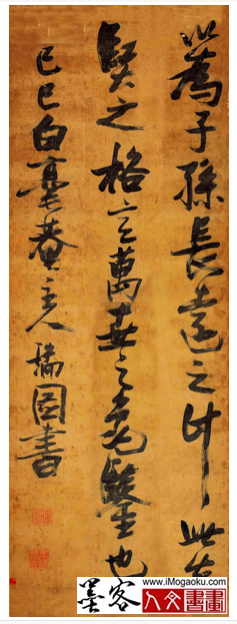 以為子孫長遠之計此先
賢之格言萬世之龜鑒也
己巳白毫菴主人瑞圖書
墨客
www.iMogaoku.com
人文書畫